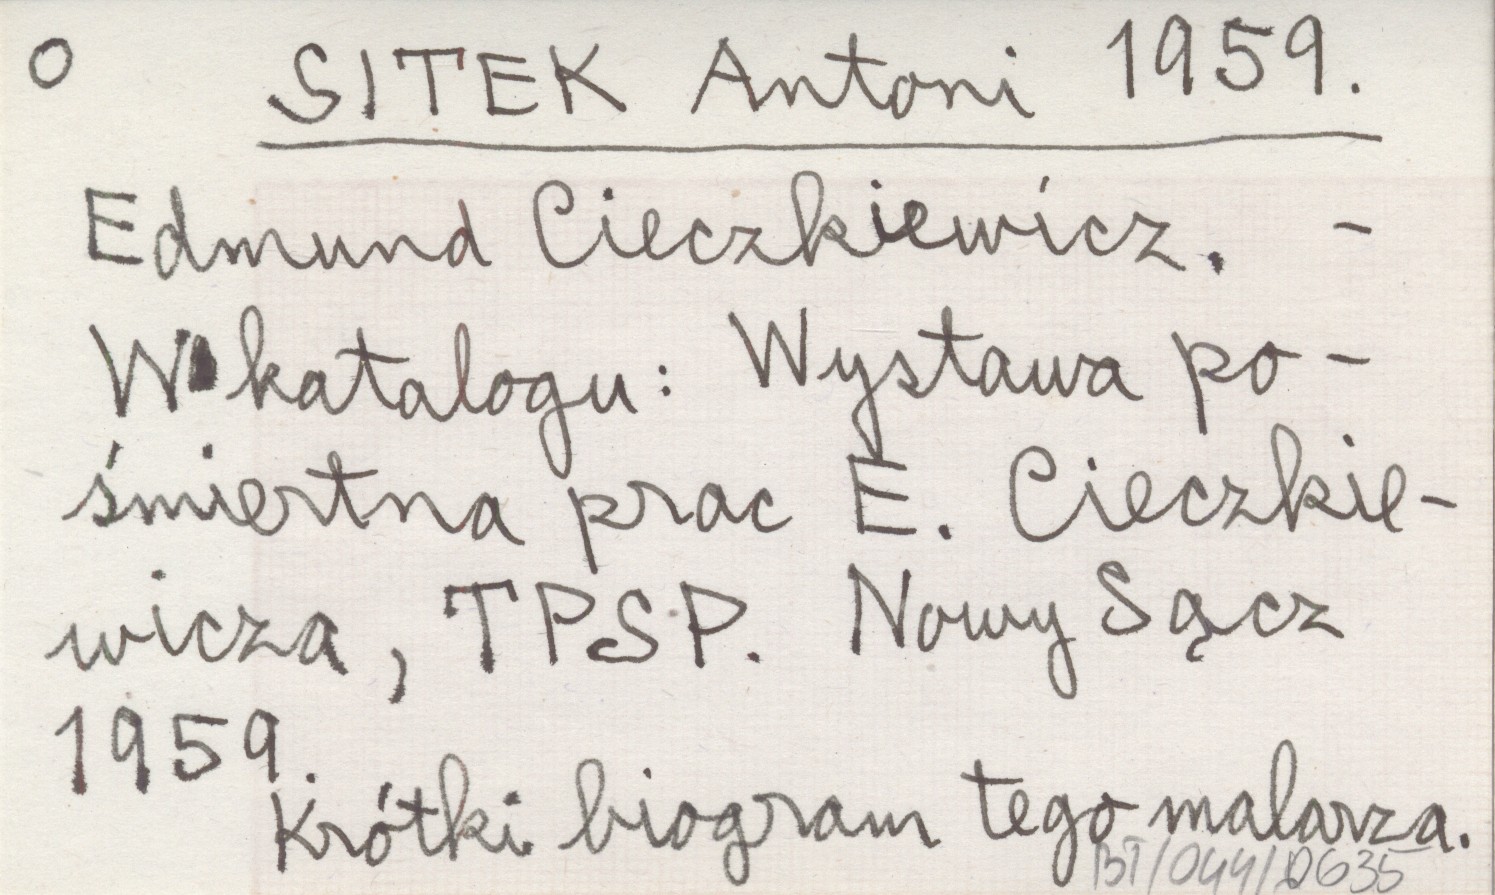 O SITEK Antoni 1959.
Edmund Cieczkiewicz. -
W katalogu: Wystawa po-
śmiertna prac E. Cieczkie-
wicza, TPSP. Nowy Sącz
1959.
Krótki biogram tego malarza.
BT/044/0635